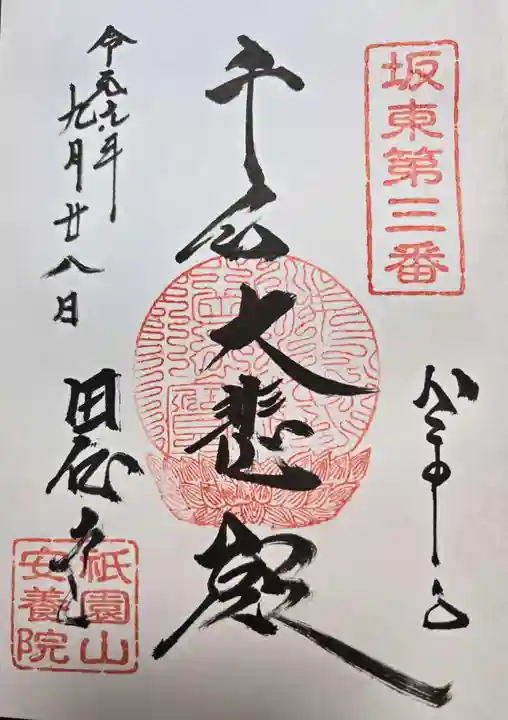 坂東第三番
千手大悲殿
令和七年
九月廿八日
田代寺
祇園山
安養院